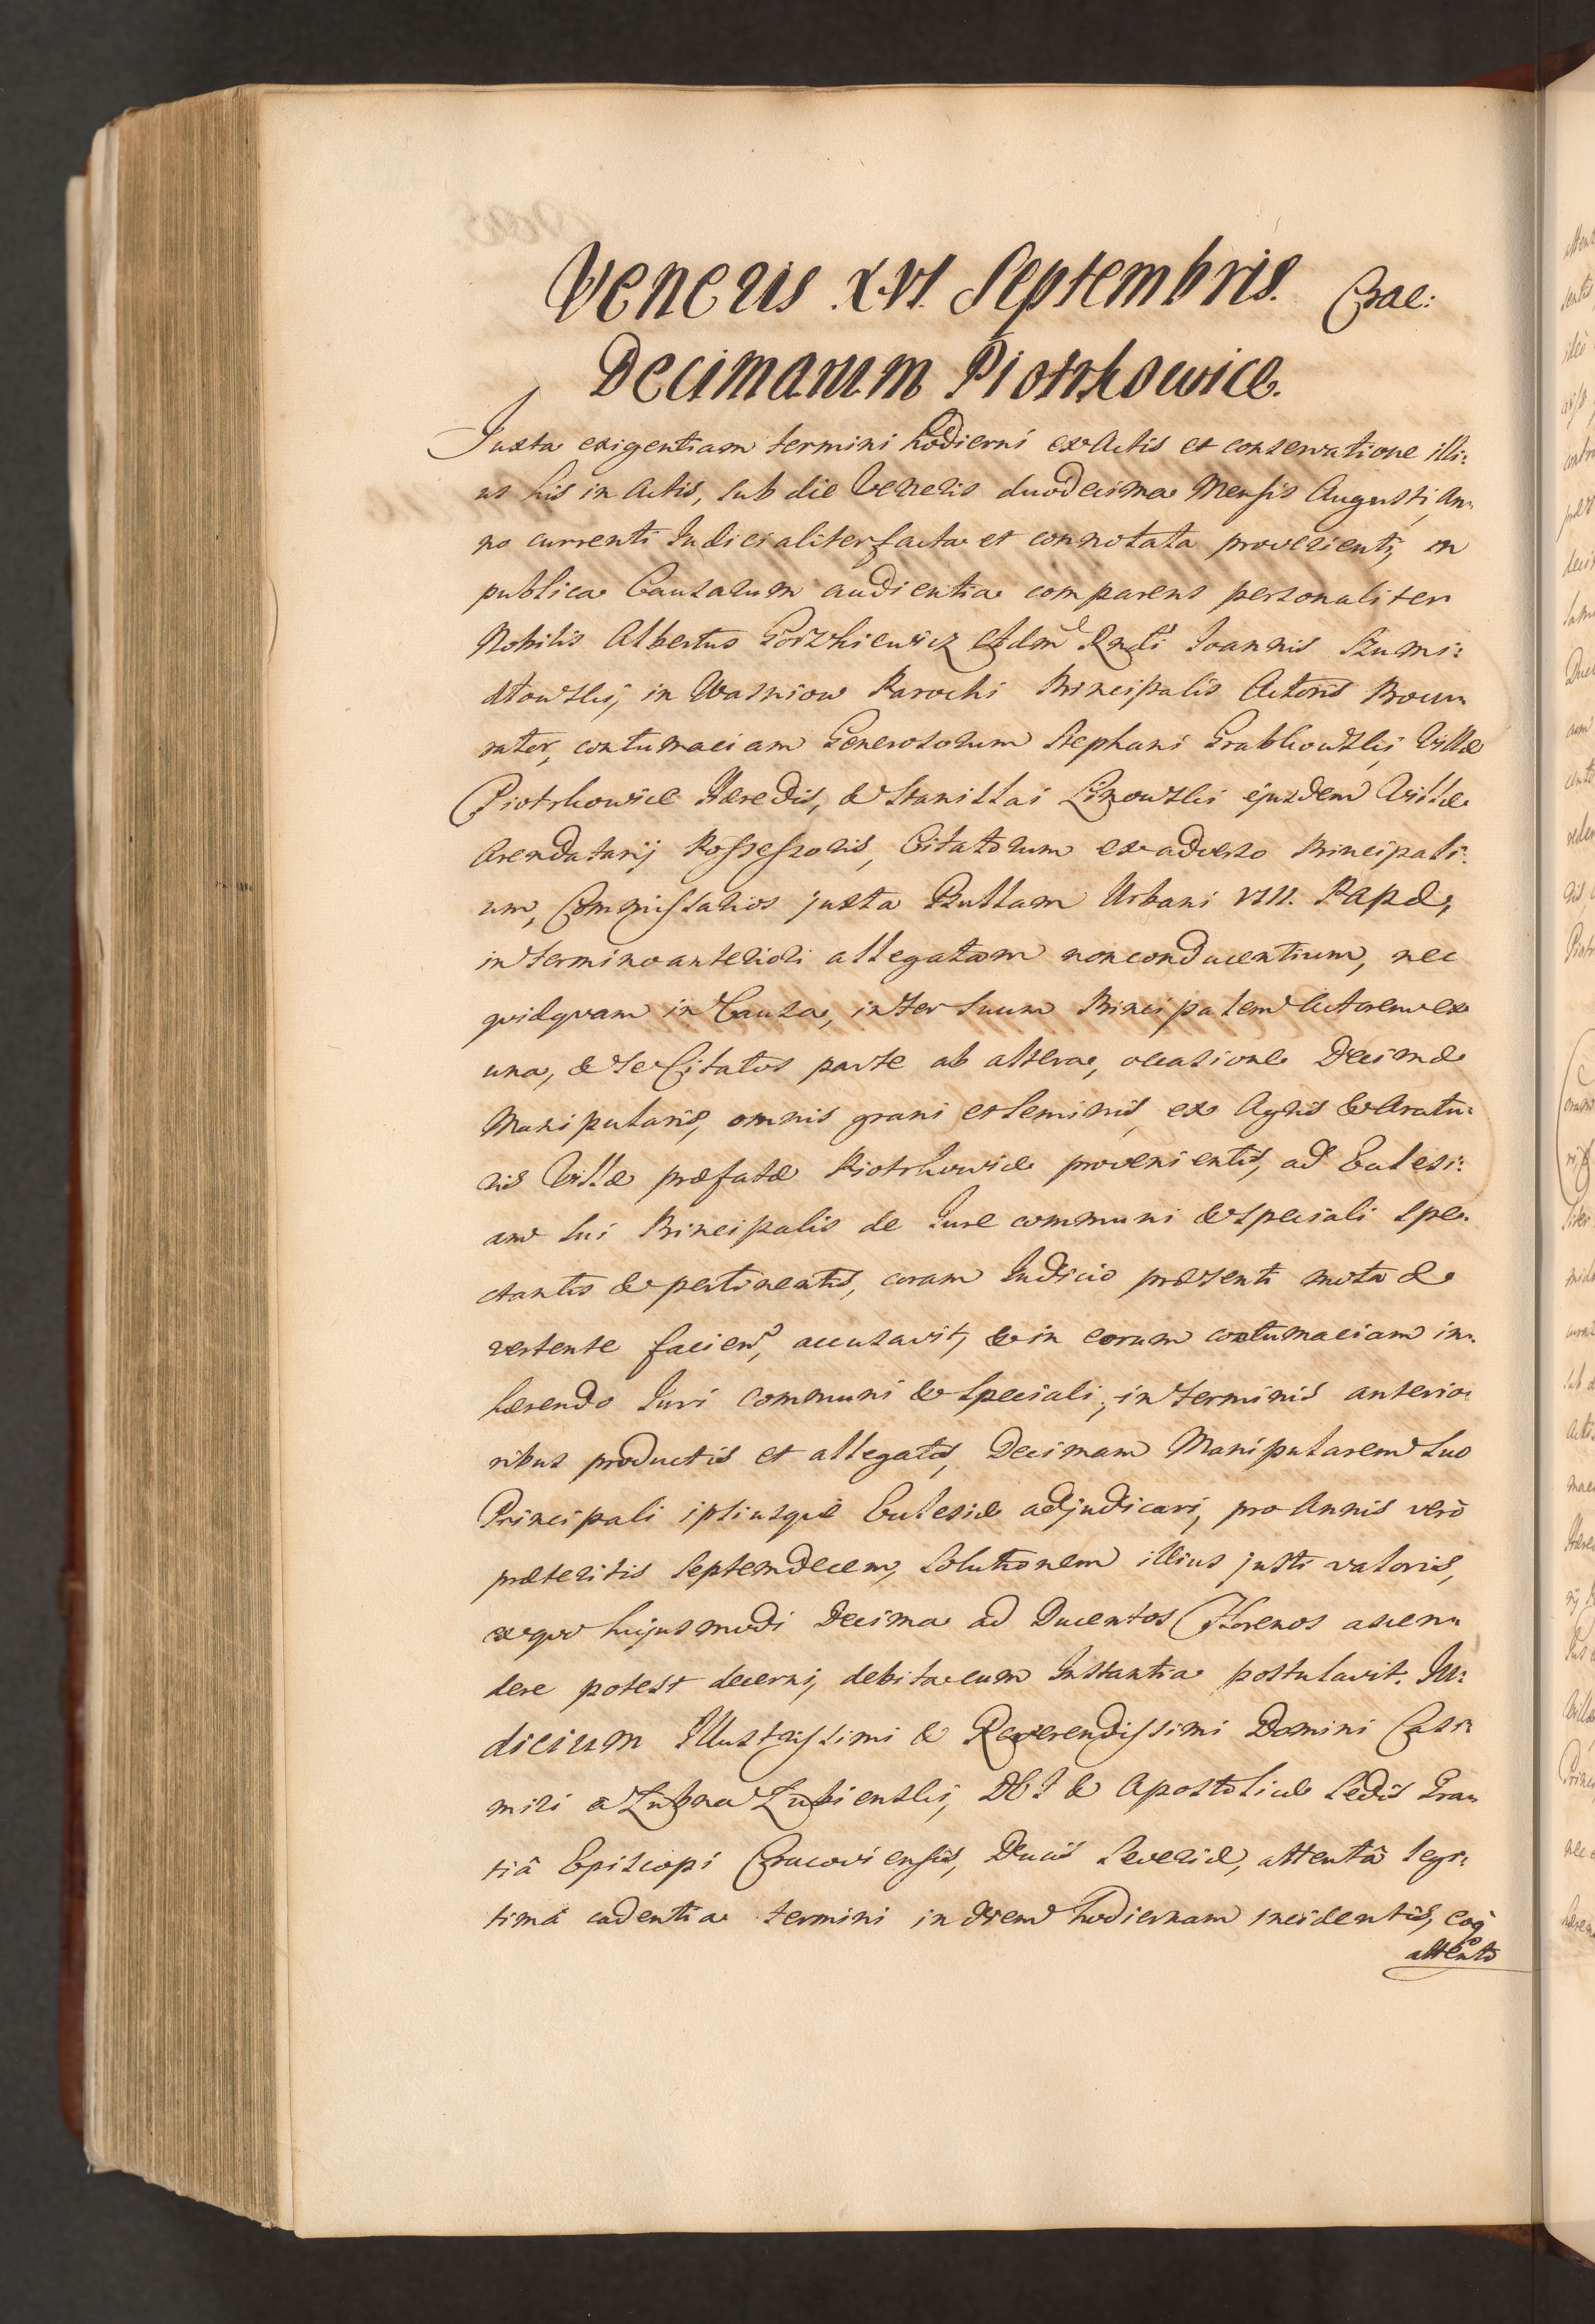 Veneris XVI. Septembris. Crac:
Decimarum Piotrkowice.
Juxta exigentiam termini hodierni ex Actis et conservatione illi:
us his in Actis, sub die Veneris duodecima Mensis Augusti, An:
no currenti Judicialiter facta et connotata provenienti, in
publica Causarum audientia comparens personaliter
Nobilis Albertus Gorzkiewicz Adm Rndi Joannis Szumi:
dłowski, in Wasniow Parochi Principalis Actoris Procu:
rator, contumaciam Generosorum Stephani Grabkowski, Villæ
Piotrkowice Hæredis, & Stanislai Linowski ejusdem Villæ
Arendatarij Possessoris, Citatorum ex adverso Principali:
um, Commissarios juxta Bullam Urbani VIII. Papæ,
in termino anteriori allegatam non conducentium, nec
quidquam in Causa, inter suum Principalem Actorem ex
una, & se Citatos parte ab altera, occasione Decimæ
Manipularis, omnis grani et seminis, ex Agris & Aratu:
ris Villæ præfatæ Piotrkowice provenientis, ad Ecclesi:
am sui Principalis de Jure communi & speciali spe:
ctantis & pertinentis, coram Judicio præsenti mota &
vertente facien, accusavit, & in eorum contumaciam in:
hærendo Juri communi & speciali, in terminis anterio:
ribus productis et allegatis, Decimam Manipularem suo
Principali ipsiusque Ecclesiæ adjudicari, pro Annis verò
præteritis septemdecem, solutionem illius justi valoris,
ex quo hujusmodi Decima ad Ducentos Florenos ascen:
dere potest decerni, debita cum Instantia postulavit. Ju:
dicium Illustrissimi & Reverendissimi Domini Casi:
miri à Łubna Łubienski, DEI & Apostolicæ Sedis Gra:
tiâ Episcopi Cracoviensis, Ducis Severiæ, attentâ legi:
timâ cadentia termini in diem hodiernam incidentis, eoq
attento